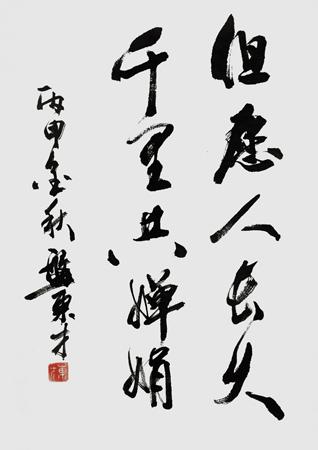 但愿人长久
千里共嬋娟
丙申金秋盤东才